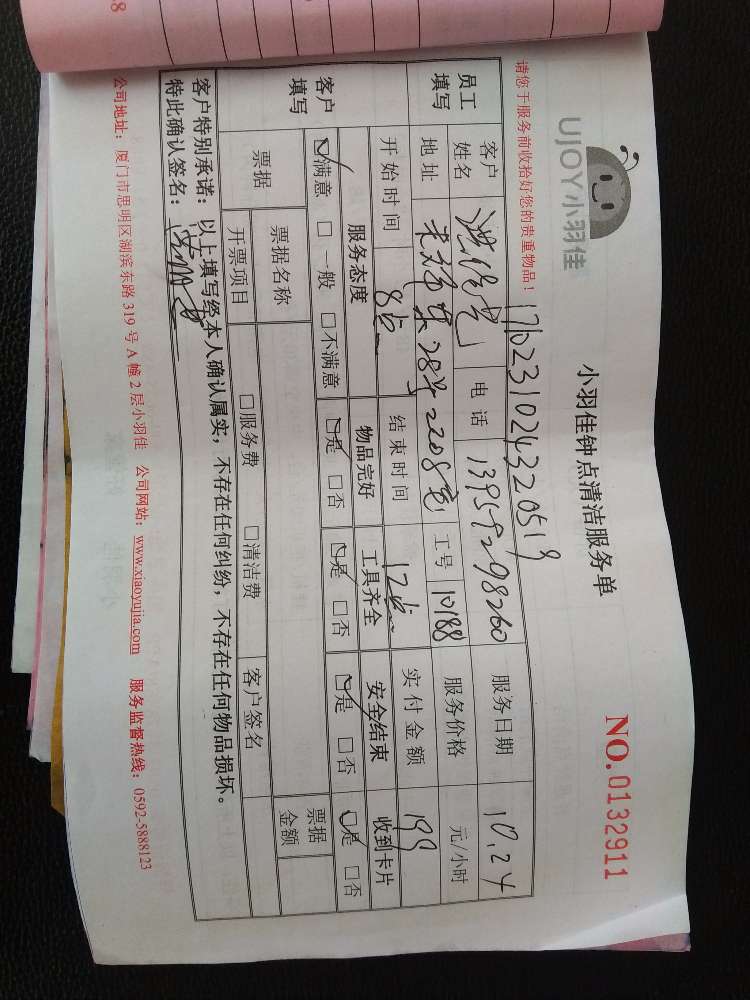 UJOY小羽佳
小羽佳钟点清洁服务单
NO.0132911
请您于服务前收拾好您的贵重物品！
1710231024320519
员工填写
客户姓名 电话 13959298260 服务日期 10.24
地址 28# 2208室 工号 10188 服务价格 元/小时
开始时间 8点 结束时间 12点 实付金额 199
客户填写
服务态度 物品完好 工具齐全 安全结束 收到卡片
☑满意 □一般 □不满意 ☑是 □否 ☑是 □否 ☑是 □否 ☑是 □否
票据 票据名称 票据金额
开票项目 □服务费 □清洁费 客户签名
客户特别承诺：以上填写经本人确认属实，不存在任何纠纷，不存在任何物品损坏。
特此确认签名：
公司地址：厦门市思明区湖滨东路319号A幢2层小羽佳 公司网站：www.xiaoyujia.com 服务监督热线：0592-5888123